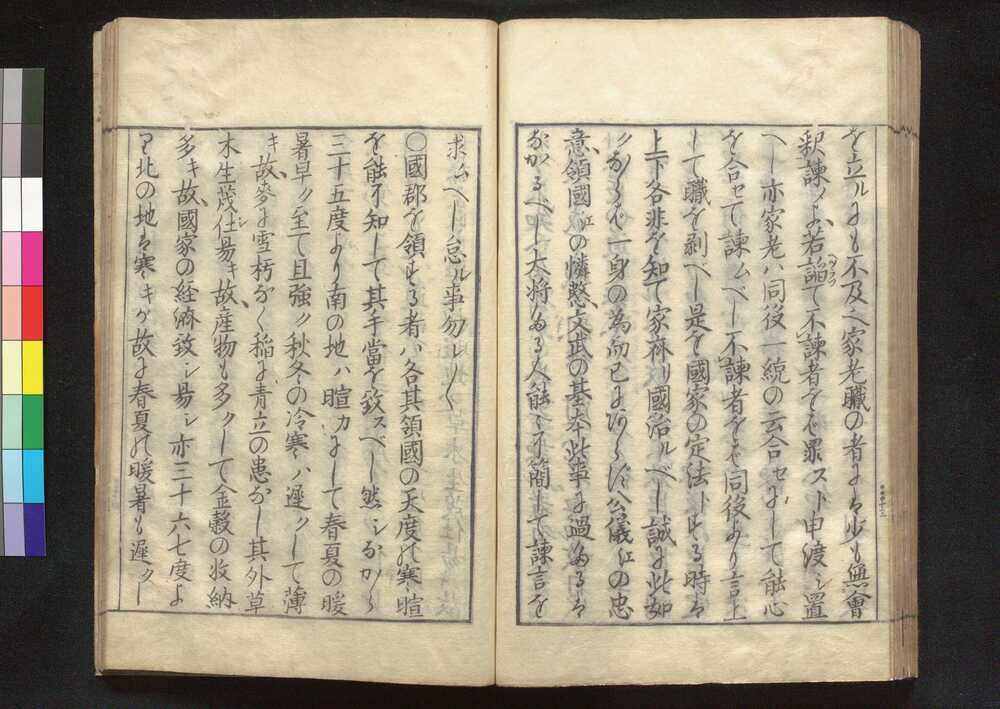 を立ルにも不及又家老職の者には少も無會
釈諫めよ若諂て不諫者をば罪スト申渡シ置
へし亦家老ハ同役一統の云合セにして能心
を合セて諫ムべし不諫者をば同役より言上
して職を剥べし是を國家の定法トする時は
上下各非を知て家齊リ國治ルべし誠に此如
クならば一身の為而已にあらず公儀江の忠
意領國江の憐愍文武の基本此事に過たるは
なかるべし大将たる人能々了簡して諫言を
求ムへし怠ル事勿レ〱
〇國郡を領する者ハ各其領國の天度の寒暄
を能ク知して其手當を致スべし然シながら
三十五度より南の地ハ暄カにして春夏の暖
暑早ク至て且強ク秋冬の冷寒ハ遅クして薄
キ故麥に雪朽なく稲に青立の患なし其外草
木生茂仕易キ故産物も多クして金穀の收納
多キ故國家の経濟致シ易シ亦三十六七度よ
り北の地は寒キが故に春夏の暖暑も遅クし